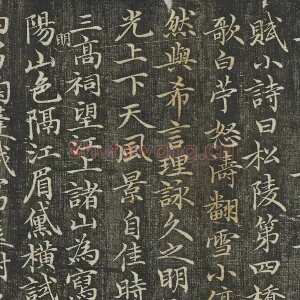 賦小詩曰松陵第四橋
歌白苧怒濤翻雪小停
然與希言理詠久之明
光上下天風景自佳時
三高祠望江上諸山為寫
明
陽山色隔江眉黛橫試